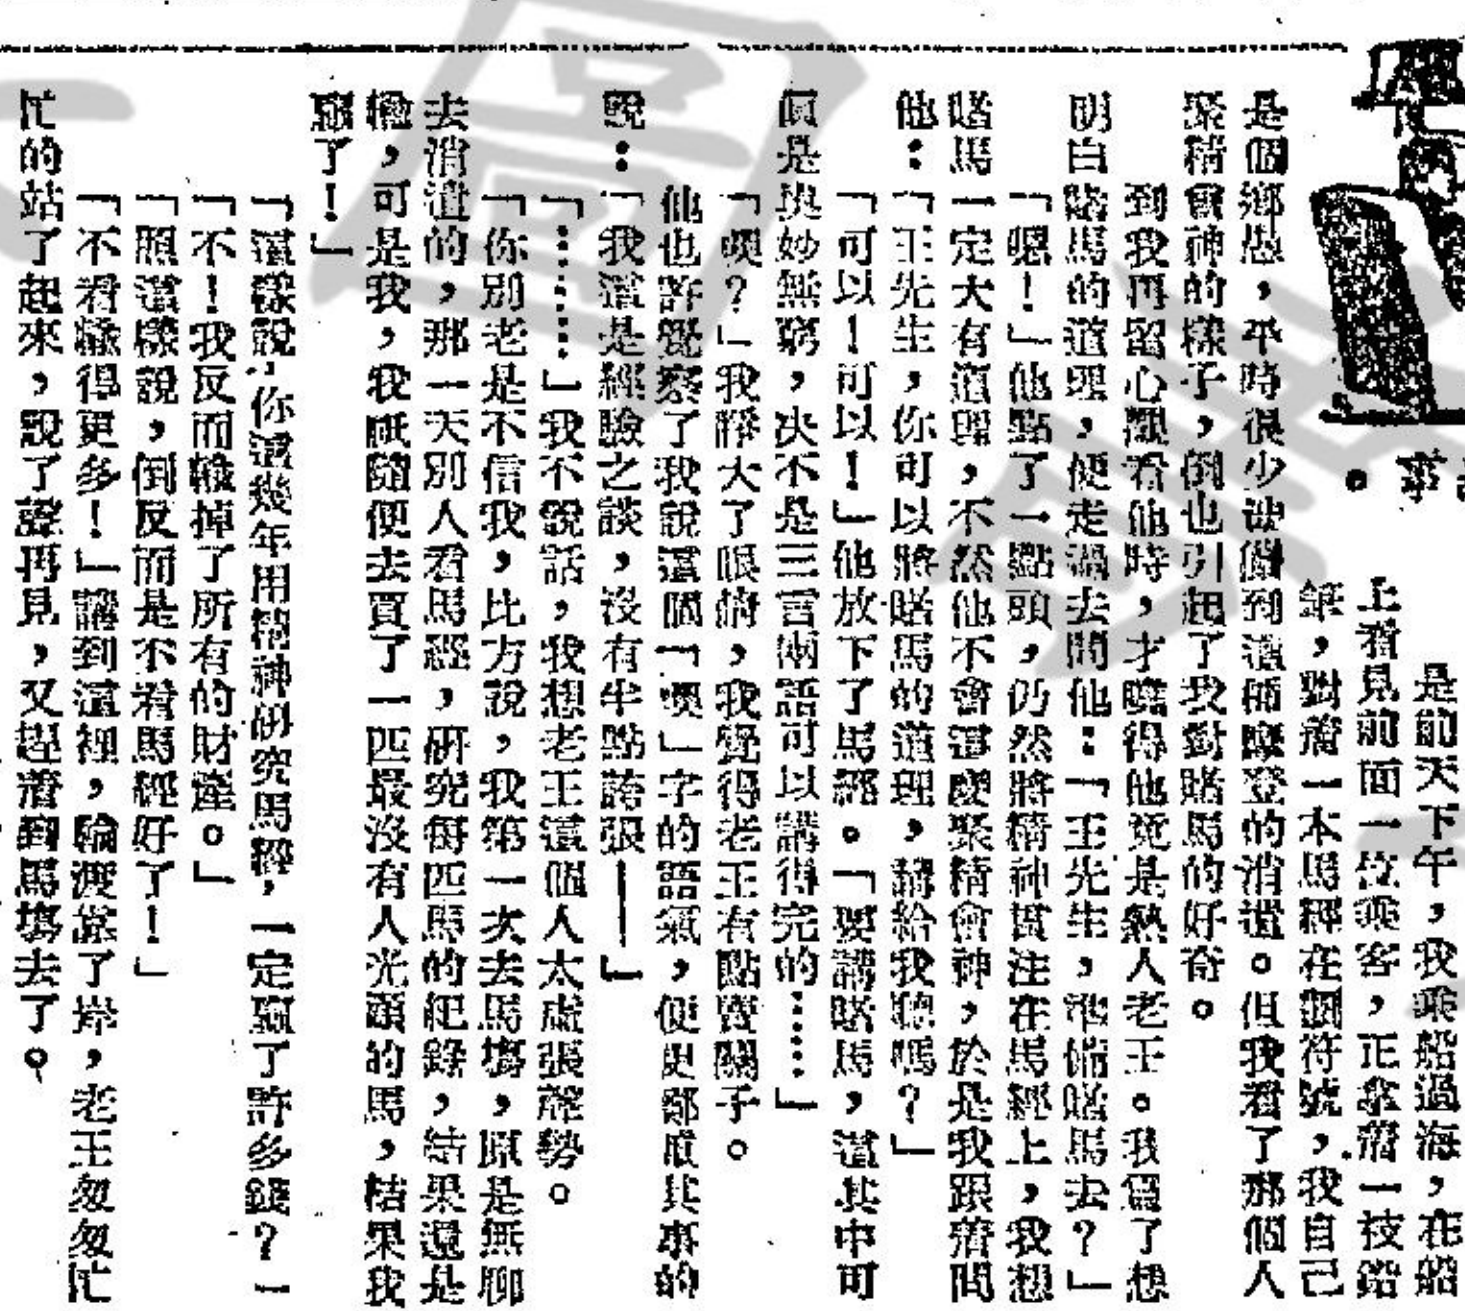 事。
是前天下午，我乘船過海，在船
上看見前面一位乘客，正拿着一技鉛
筆，對着一本馬經在劃符號，我自己
是個鄉愚，平時很少波備到這種摩登的消遣。但我看了那個人
聚精會神的樣子，倒也引起了我對賭馬的好奇。
到我再留心觀看他時，才曉得他竟是熱人老王。我爲了想
明白賭馬的道理，便走過去問他：「王先生，準備賭馬去？」
「嗯！」他點了一點頭，仍然將精神貫注在馬經上，我想
賭馬一定大有道理，不然他不會這麼聚精會神，於是我跟着問
他：「王先生，你可以將賭馬的道理，講給我聽嗎？」
「可以！可以！」他放下了馬經。「要講賭馬，這其中可
眞是奥妙無窮，决不是三言兩語可以講得完的……」
「噢？」我睜大了眼睛，我覺得老王有點賣關子。
他也許覺察了我說這個「噢」字的語氣，便更鄭重其事的
說：「我這是經驗之談，沒有半點誇張——」
「……」我不說話，我想老王這個人太虛張聲勢。
「你別老是不信我，比方說，我第一次去馬塲，原是無聊
去消遣的，那一天別人看馬經，研究每匹馬的紀錄，結果還是
輸，可是我，我祇隨便去買了一匹最沒有人光顧的馬，結果我
贏了！」
「這樣說，你這幾年用精神研究馬經，一定贏了許多錢？」
「不！我反而輸掉了所有的財產。」
「照這樣說，倒反而是不看馬經好了！」
「不看輸得更多！」講到這裡，輪渡靠了岸，老王匆匆忙
忙的站了起來，說了聲再見，又趕着到馬塲去了。